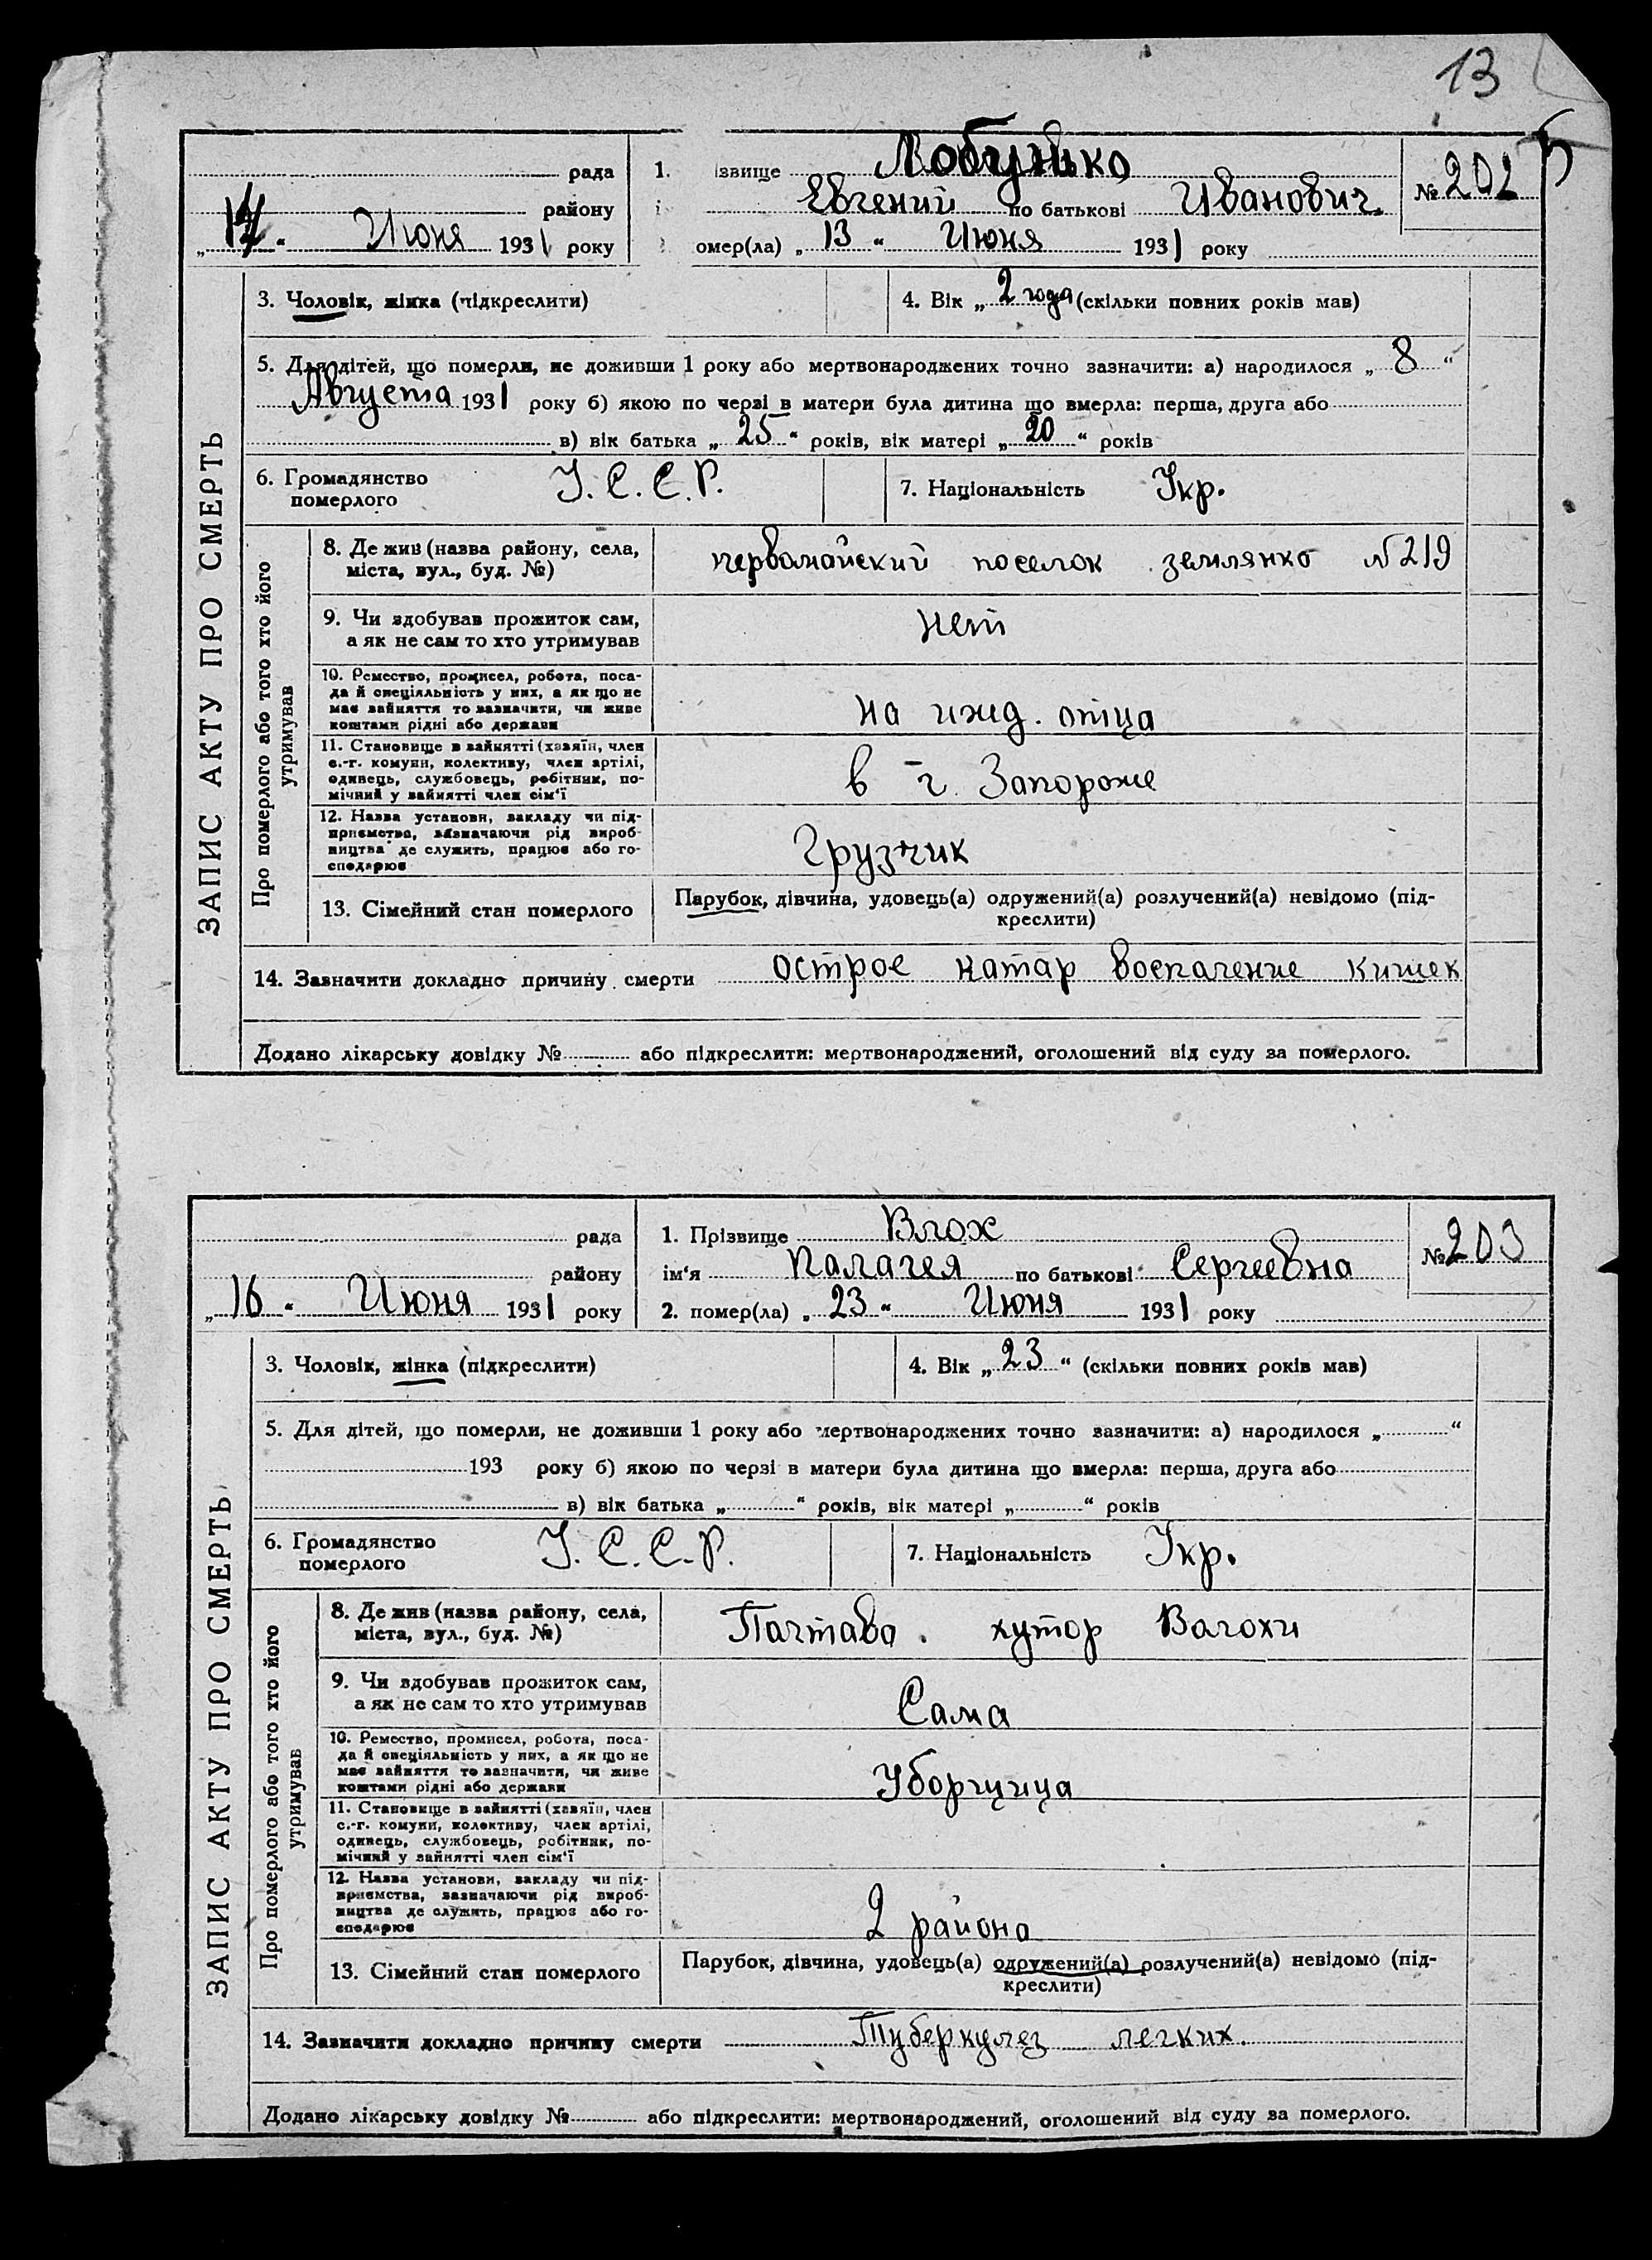 13
рада 1. ізвище Лобунько № 202
району Евгений по батькові Иванович.
„ 14 " Июня 1931 року омер(ла) „ 13 " Июня 1931 року
3. Чоловік, жінка (підкреслити) 4. Вік „ 2 года (скільки повних років мав)
5. Для дітей, що померли, не доживши 1 року або мертвонароджених точно зазначити: а) народилося „ 8 "
Августа 1931 року б) якою по черзі в матери була дитина що вмерла: перша, друга або
в) вік батька „ 25 " років, вік матері „ 20 " років
6. Громадянство У. С. С. Р. 7. Національність Укр.
померлого
ЗАПИС АКТУ ПРО СМЕРТЬ
Про померлого або того хто його
утримував
8. Де жив (назва району, села, первомайский поселок землянка N 219
міста, вул., буд. №)
9. Чи здобував прожиток сам, нет
а як не сам то хто утримував
10. Ремество, промисел, робота, поса-
да й спеціяльність у них, а як що не
має зайняття то зазначити, чи живе на ижд. отца
коштами рідні або держави
11. Становище в зайнятті (хазяїн, член
с.-г. комуни, колективу, член артілі,
одинець, службовець, робітник, по- в г. Запороже
мічний у зайнятті член сім'ї
12. Назва установи, закладу чи під-
приємства, зазначаючи рід вироб-
ництва де служить, працює або го- Грузчик
сподарює
13. Сімейний стан померлого Парубок, дівчина, удовець(а) одружений(а) розлучений(а) невідомо (під-
креслити)
14. Зазначити докладно причину смерти острое катар воспаление кишек
Додано лікарську довідку № або підкреслити: мертвонароджений, оголошений від суду за померлого.
рада 1. Прізвище Влох № 203
району ім'я Палагея по батькові Сергеевна
„ 16 " Июня 1931 року 2. помер(ла) „ 23 " Июня 1931 року
3. Чоловік, жінка (підкреслити) 4. Вік „ 23 " (скільки повних років мав)
5. Для дітей, що померли, не доживши 1 року або мертвонароджених точно зазначити: а) народилося „ "
193 року б) якою по черзі в матери була дитина що вмерла: перша, друга або
в) вік батька „ " років, вік матері „ " років
6. Громадянство У. С. С. Р. 7. Національність Укр.
померлого
ЗАПИС АКТУ ПРО СМЕРТЬ
Про померлого або того хто його
утримував
8. Де жив (назва району, села, хутор
міста, вул., буд. №)
9. Чи здобував прожиток сам, Сама
а як не сам то хто утримував
10. Ремество, промисел, робота, поса-
да й спеціяльність у них, а як що не
має зайняття то зазначити, чи живе Уборщица
коштами рідні або держави
11. Становище в зайнятті (хазяїн, член
с.-г. комуни, колективу, член артілі,
одинець, службовець, робітник, по-
мічний у зайнятті член сім'ї
12. Назва установи, закладу чи під-
приємства, зазначаючи рід вироб-
ництва де служить, працює або го- 2 района
сподарює
13. Сімейний стан померлого Парубок, дівчина, удовець(а) одружений(а) розлучений(а) невідомо (під-
креслити)
14. Зазначити докладно причину смерти Туберкулез легких.
Додано лікарську довідку № або підкреслити: мертвонароджений, оголошений від суду за померлого.